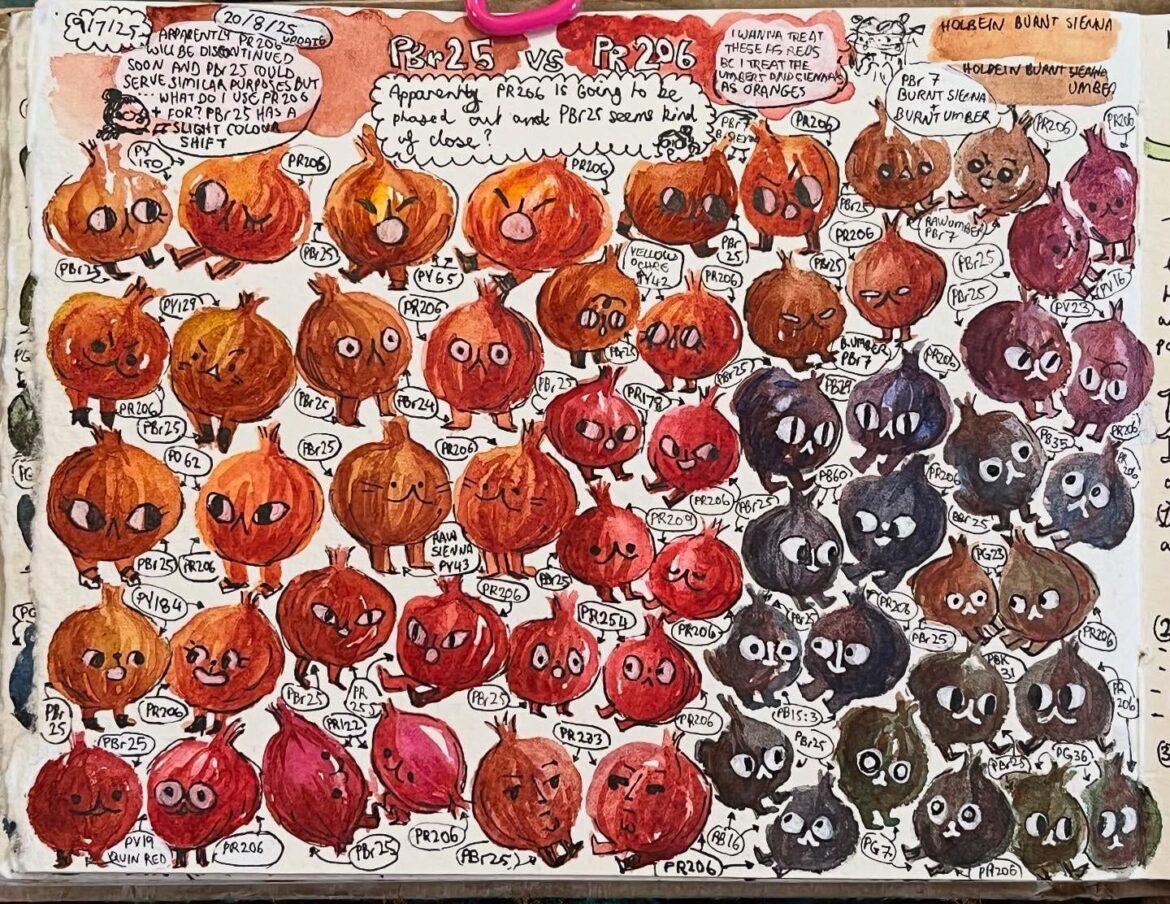 9/7/25
20/8/25
UPDATE
APPARENTLY PR206
WILL BE DISCONTINUED
SOON AND PBr25 COULD
SERVE SIMILAR PURPOSES BUT
... WHAT DO I USE PR206
FOR? PBr25 HAS A
SLIGHT COLOUR
SHIFT
PBr25 VS PR206
Apparently PR206 is Going to be
phased out and PBr25 seems kind
of close?
I WANNA TREAT
THESE AS REDS
BC I TREAT THE
UMBERS AND SIENNAS
AS ORANGES
HOLBEIN BURNT SIENNA
HOLBEIN BURNT SIENNA
UMBER
PBr7
BURNT SIENNA
+
BURNT UMBER
PY
150
PR206
PBr25
PBr25
PR206
PY65
PBr7
PR206
PBr
25
PBr25
PR206
RAW UMBER
PBr7
PR206
PBr25
PV16
PY129
PR206
PBr25
PR206
PBr25
PBr24
YELLOW
OCHRE
PY42
PR206
PBr25
PR206
PBr25
B.UMBER
PBr7
PBr25
PV23
PR206
PO62
PBr25
PR206
PBr25
PR206
RAW
SIENNA
PY43
PBr25
PR178
PR206
PBr25
PB29
PR206
PB35
PR
206
PBr25
PR209
PBr25
PR206
PBr25
PB60
PR206
PY184
PBr
25
PR206
PR206
PBr25
PR
255
PR254
PBr25
PR206
PBr25
PR206
PB15:3
PG23
PBr25
PR206
PBr25
PV19
QUIN RED
PR206
PR122
PBr25
PR206
PR233
PBr25
PR206
PBr25
PB16
PBK
31
PR
206
PBr25
PG36
PG7
PR206